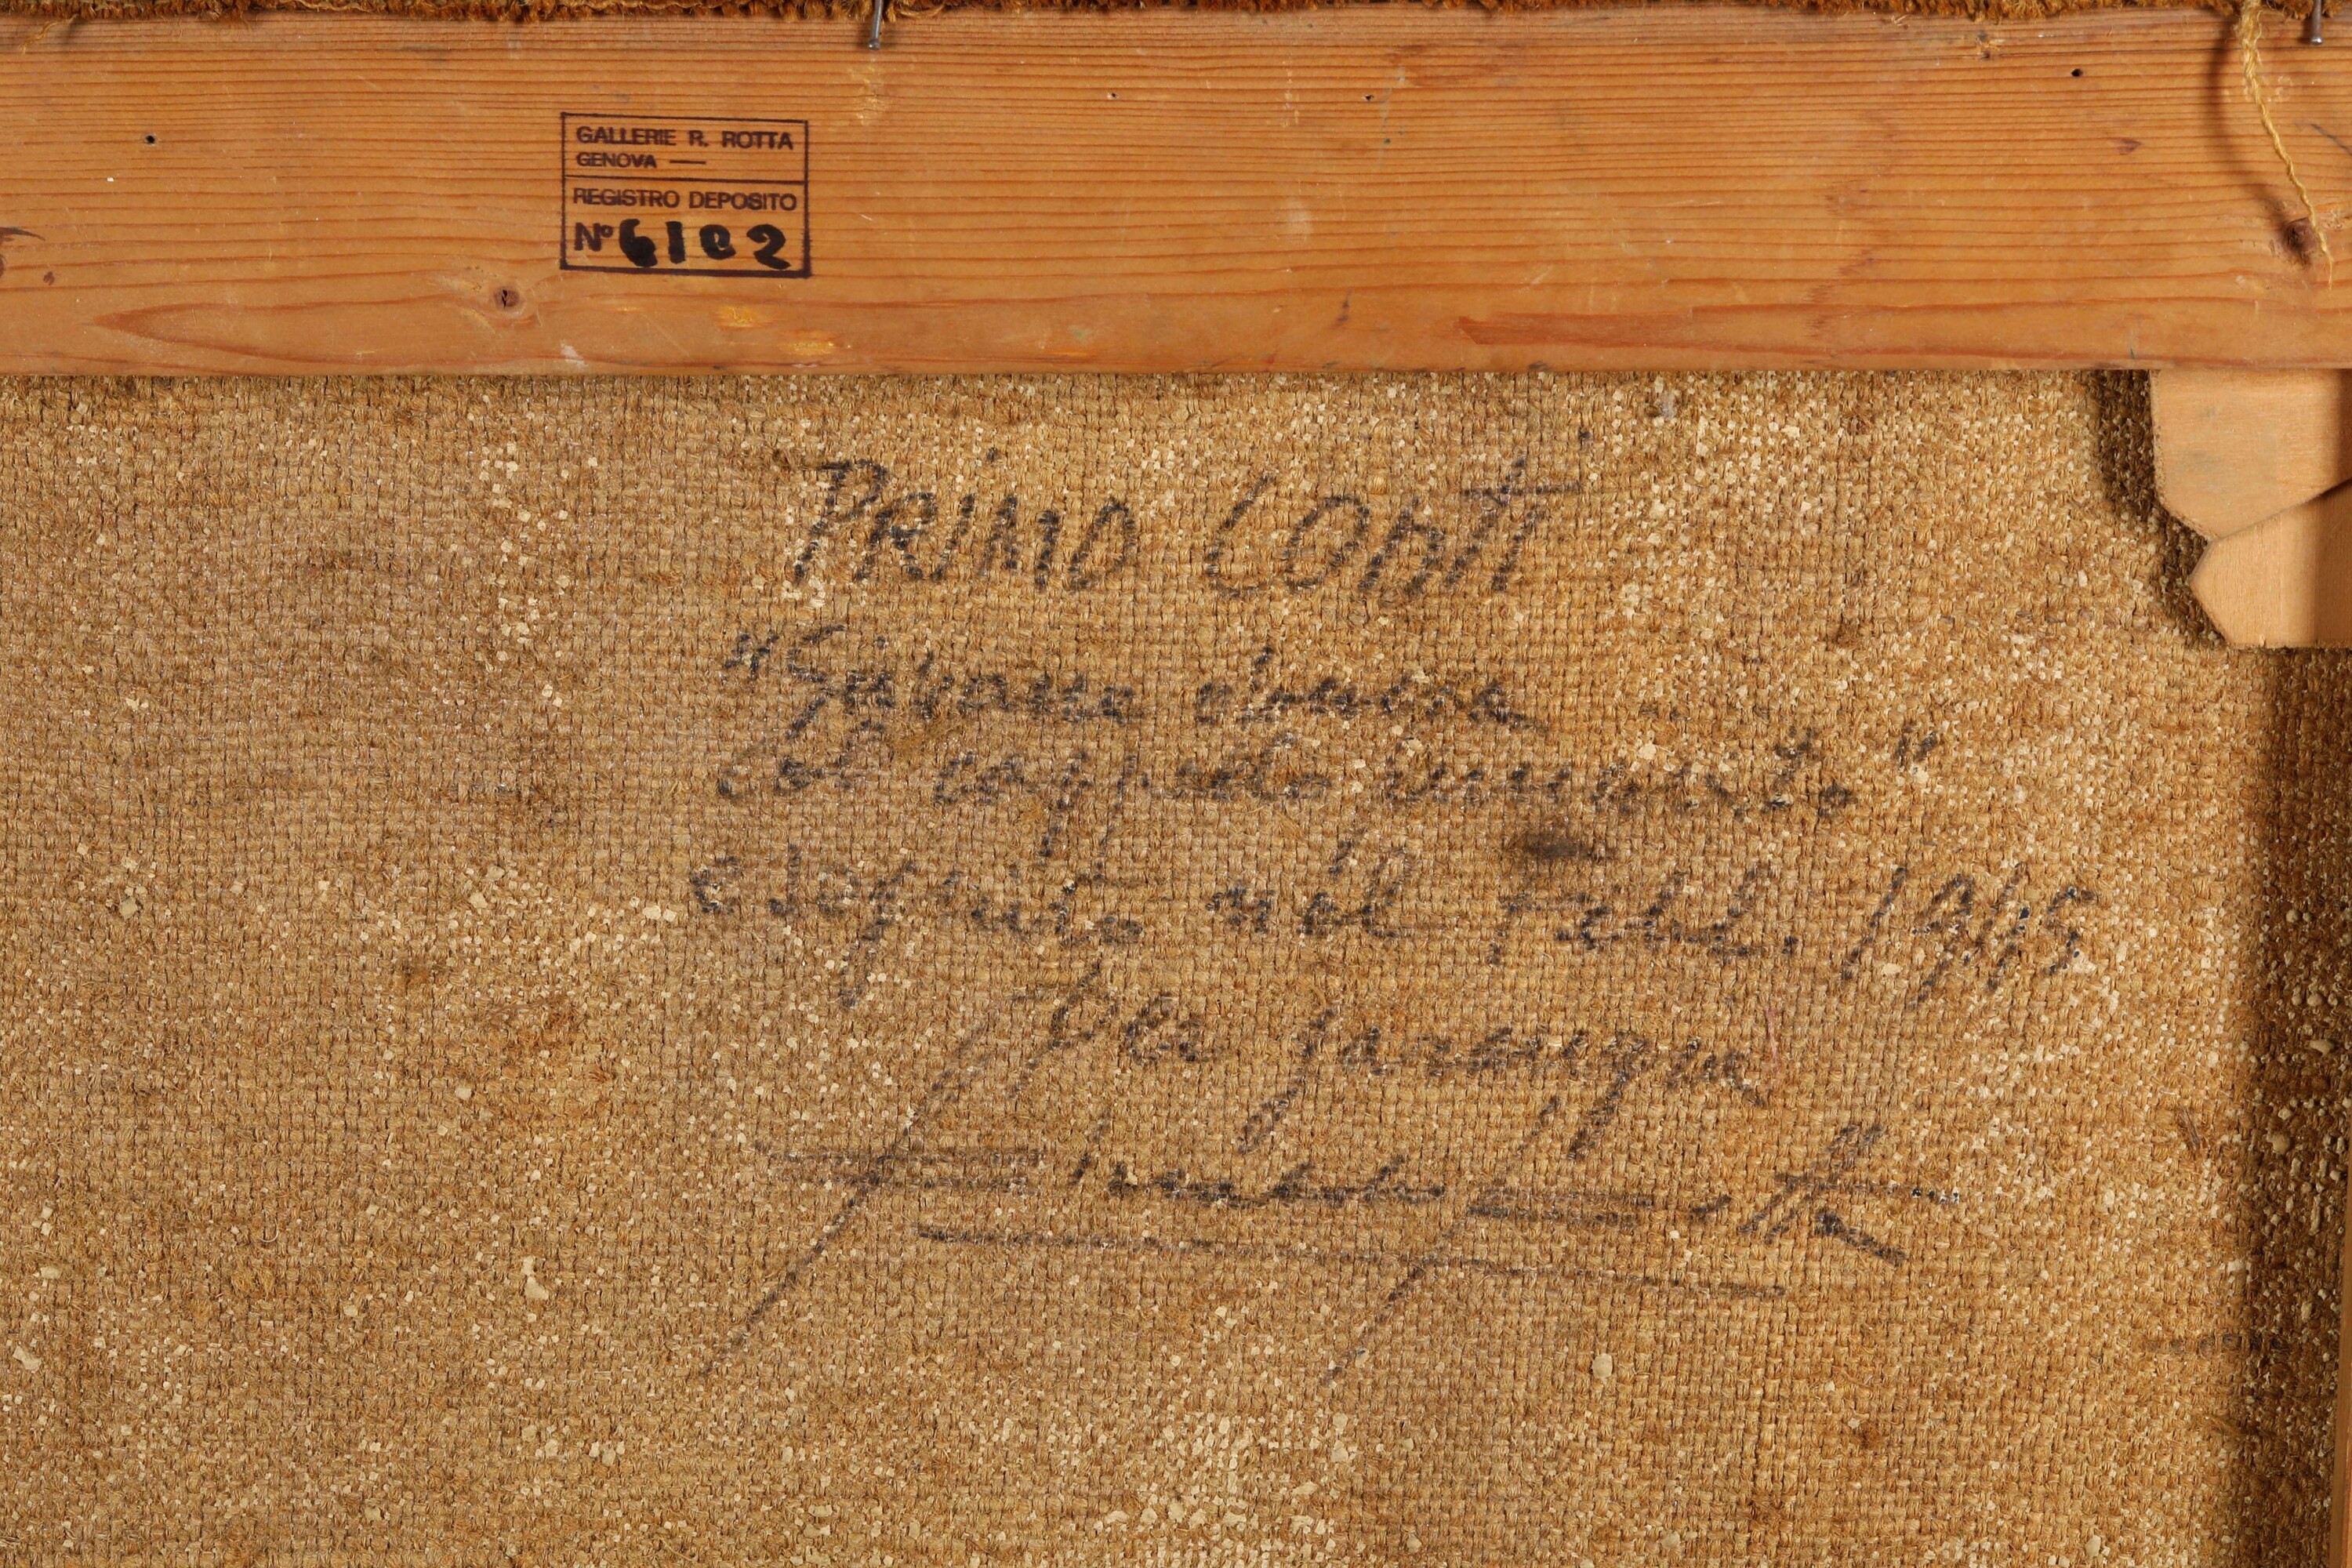 GALLERIE R. ROTTA
GENOVA —
REGISTRO DEPOSITO
Nº 6102
PRIMO CONTI
"Giovane donna
col cappello
eseguito nel Febb. 1915
Primo Conti